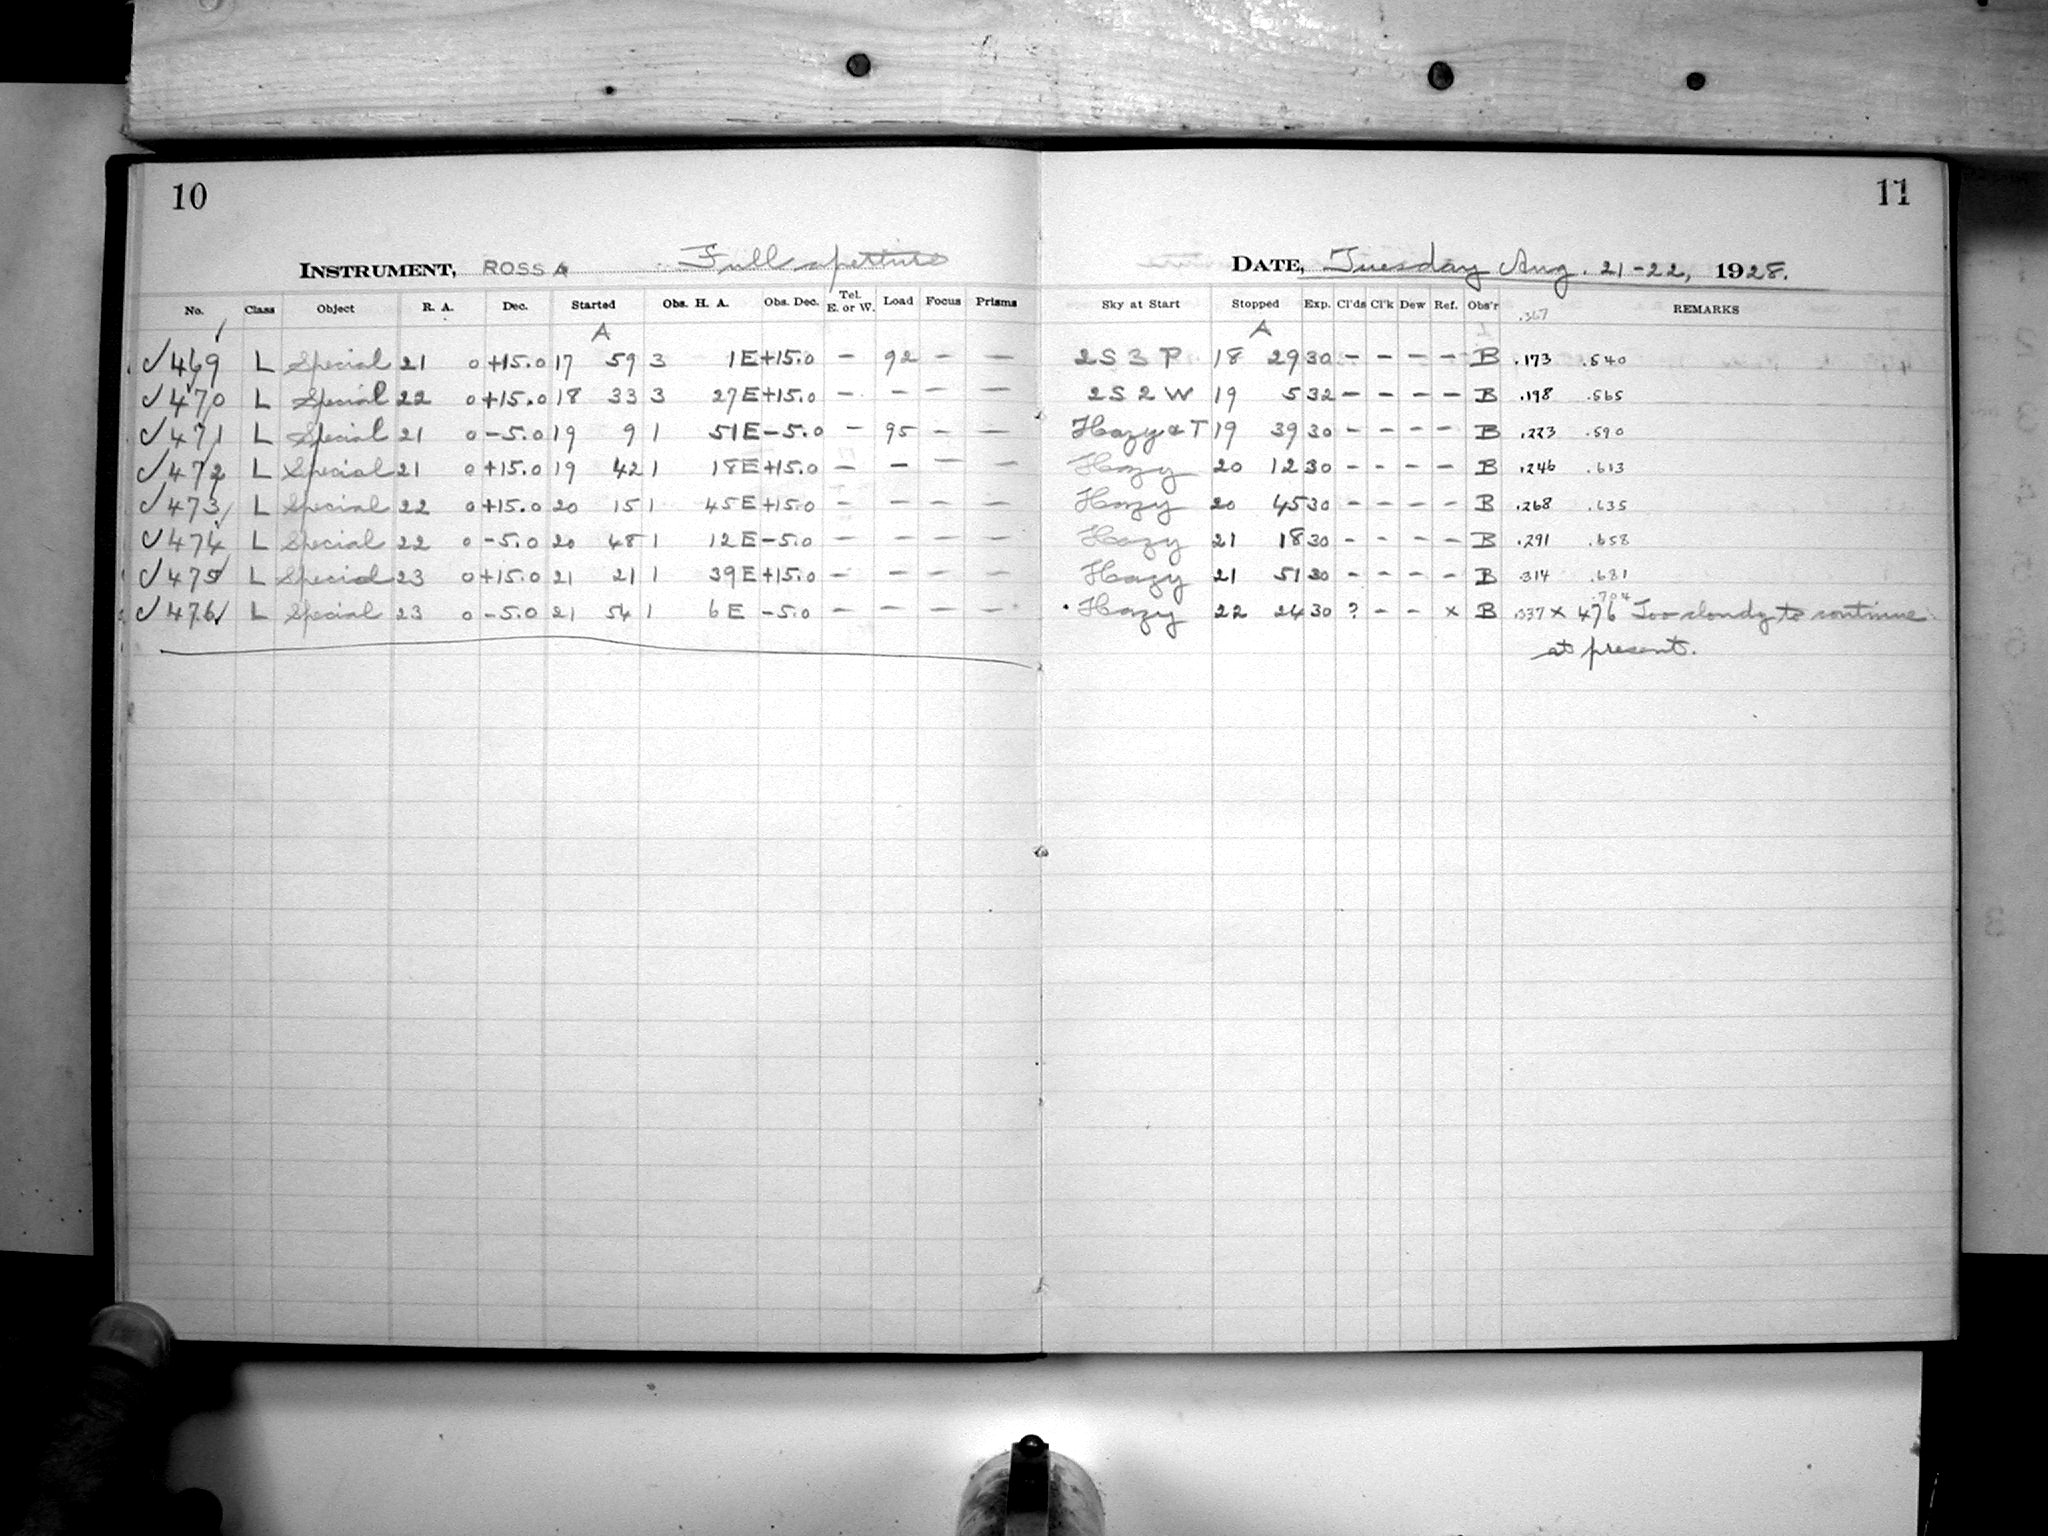 10
INSTRUMENT, ROSS A Full aperture
No. Class Object R. A. Dec. Started Obs. H. A. Obs. Dec. Tel. E. or W. Load Focus Prisms
A
✓ 469 L Special 21 0 +15.0 17 59 3 1 E +15.0 – 92 – –
✓ 470 L Special 22 0 +15.0 18 33 3 27 E +15.0 – – – –
✓ 471 L Special 21 0 -5.0 19 9 1 51 E -5.0 – 95 – –
✓ 472 L Special 21 0 +15.0 19 42 1 18 E +15.0 – – – –
✓ 473 L Special 22 0 +15.0 20 15 1 45 E +15.0 – – – –
✓ 474 L Special 22 0 -5.0 20 48 1 12 E -5.0 – – – –
✓ 475 L Special 23 0 +15.0 21 21 1 39 E +15.0 – – – –
✓ 476 L Special 23 0 -5.0 21 54 1 6 E -5.0 – – – –
11
DATE, Tuesday Aug. 21-22, 1928.
Sky at Start Stopped Exp. Cl'ds Cl'k Dew Ref. Obs'r REMARKS
.367
A
2 S 3 P 18 29 30 – – – – B .173 .540
2 S 2 W 19 5 32 – – – – B .198 .565
Hazy & T 19 39 30 – – – – B .223 .590
Hazy 20 12 30 – – – – B .246 .613
Hazy 20 45 30 – – – – B .268 .635
Hazy 21 18 30 – – – – B .291 .658
Hazy 21 51 30 – – – – B .314 .681
.704
Hazy 22 24 30 ? – – x B .337 x 476 Too cloudy to continue
at present.